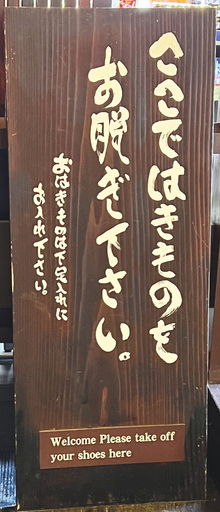 ここではきものを
お脱ぎ下さい。
おはきものは下足入れに
お入れ下さい。
Welcome Please take off
your shoes here